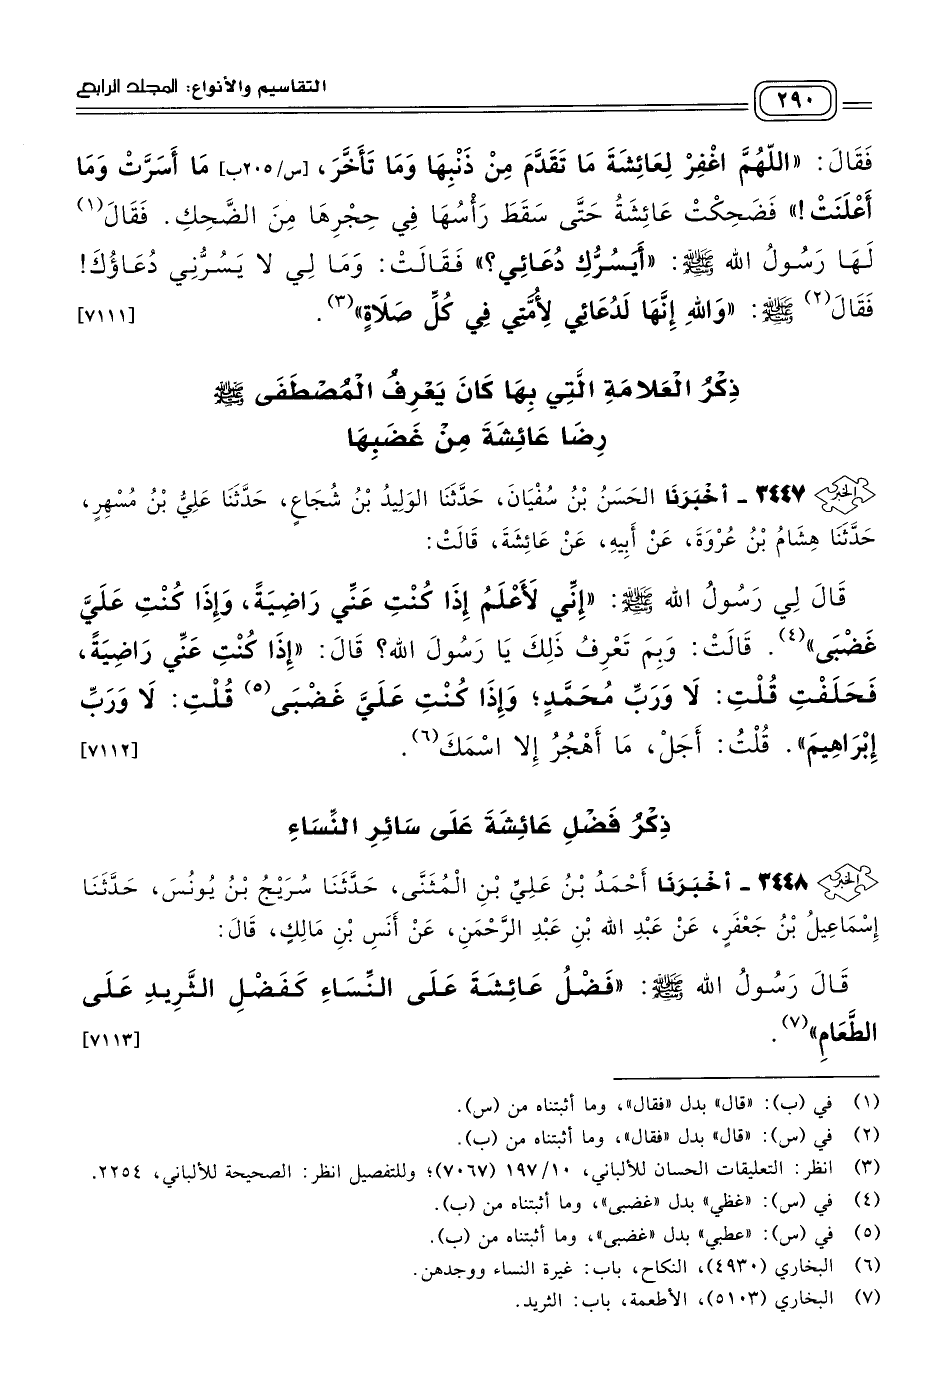 التقاسيم والأنواع: المجلد الرابع
٢٩٠
فَقَالَ: «اللَّهُمَّ اغْفِرْ لِعَائِشَةَ مَا تَقَدَّمَ مِنْ ذَنْبِهَا وَمَا تَأَخَّرَ، [س/٢٠٥ب] مَا أَسَرَّتْ وَمَا
أَعْلَنَتْ!» فَضَحِكَتْ عَائِشَةُ حَتَّى سَقَطَ رَأْسُهَا فِي حِجْرِهَا مِنَ الضَّحِكِ. فَقَالَ(١)
لَهَا رَسُولُ الله ﷺ: «أَيَسُرُّكِ دُعَائِي؟» فَقَالَتْ: وَمَا لِي لا يَسُرُّنِي دُعَاؤُكَ!
فَقَالَ(٢) ﷺ: «وَاللهِ إِنَّهَا لَدُعَائِي لِأُمَّتِي فِي كُلِّ صَلَاةٍ»(٣). [٧١١١]
ذِكْرُ الْعَلامَةِ الَّتِي بِهَا كَانَ يَعْرِفُ الْمُصْطَفَى ﷺ
رِضَا عَائِشَةَ مِنْ غَضَبِهَا
٣٤٤٧ - أَخْبَرَنَا الحَسَنُ بْنُ سُفْيَانَ، حَدَّثَنَا الوَلِيدُ بْنُ شُجَاعٍ، حَدَّثَنَا عَلِيُّ بْنُ مُسْهِرٍ،
حَدَّثَنَا هِشَامُ بْنُ عُرْوَةَ، عَنْ أَبِيهِ، عَنْ عَائِشَةَ، قَالَتْ:
قَالَ لِي رَسُولُ الله ﷺ: «إِنِّي لَأَعْلَمُ إِذَا كُنْتِ عَنِّي رَاضِيَةً، وَإِذَا كُنْتِ عَلَيَّ
غَضْبَى»(٤). قَالَتْ: وَبِمَ تَعْرِفُ ذَلِكَ يَا رَسُولَ الله؟ قَالَ: «إِذَا كُنْتِ عَنِّي رَاضِيَةً،
فَحَلَفْتِ قُلْتِ: لَا وَرَبِّ مُحَمَّدٍ؛ وَإِذَا كُنْتِ عَلَيَّ غَضْبَى(٥) قُلْتِ: لَا وَرَبِّ
إِبْرَاهِيمَ». قُلْتُ: أَجَلْ، مَا أَهْجُرُ إِلا اسْمَكَ(٦). [٧١١٢]
ذِكْرُ فَضْلِ عَائِشَةَ عَلَى سَائِرِ النِّسَاءِ
٣٤٤٨ - أَخْبَرَنَا أَحْمَدُ بْنُ عَلِيِّ بْنِ الْمُثَنَّى، حَدَّثَنَا سُرَيْجُ بْنُ يُونُسَ، حَدَّثَنَا
إِسْمَاعِيلُ بْنُ جَعْفَرٍ، عَنْ عَبْدِ الله بْنِ عَبْدِ الرَّحْمَنِ، عَنْ أَنَسِ بْنِ مَالِكٍ، قَالَ:
قَالَ رَسُولُ الله ﷺ: «فَضْلُ عَائِشَةَ عَلَى النِّسَاءِ كَفَضْلِ الثَّرِيدِ عَلَى
الطَّعَامِ»(٧). [٧١١٣]
(١) في (ب): «قال» بدل «فقال»، وما أثبتناه من (س).
(٢) في (س): «قال» بدل «فقال»، وما أثبتناه من (ب).
(٣) انظر: التعليقات الحسان للألباني، ١٠/ ١٩٧ (٧٠٦٧)؛ وللتفصيل انظر: الصحيحة للألباني، ٢٢٥٤.
(٤) في (س): «غظي» بدل «غضبى»، وما أثبتناه من (ب).
(٥) في (س): «عطبي» بدل «غضبى»، وما أثبتناه من (ب).
(٦) البخاري (٤٩٣٠)، النكاح، باب: غيرة النساء ووجدهن.
(٧) البخاري (٥١٠٣)، الأطعمة، باب: الثريد.